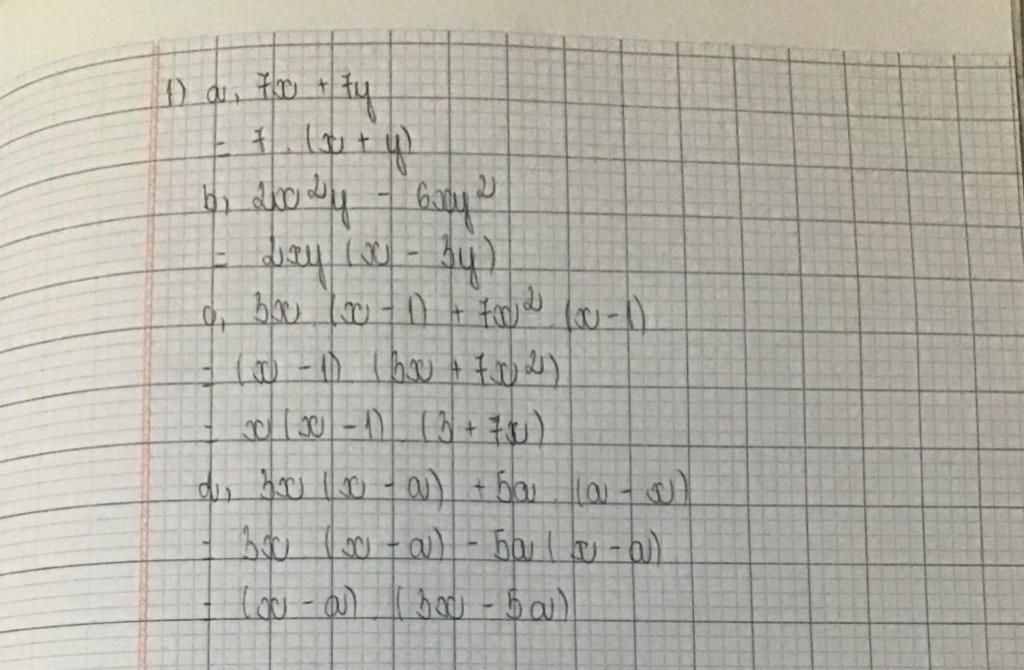 1) a, 7x + 7y
= 7 . (x + y)
b, 2x²y - 6xy²
= 2xy (x - 3y)
c, 3x (x - 1) + 7x² (x - 1)
= (x - 1) (3x + 7x²)
= x (x - 1) (3 + 7x)
d, 3x (x - a) + 5a (a - x)
= 3x (x - a) - 5a (x - a)
= (x - a) (3x - 5a)